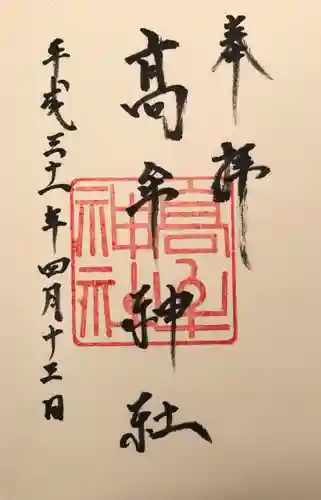 奉拝
高牟神社
平成三十一年四月十三日
高牟
神社